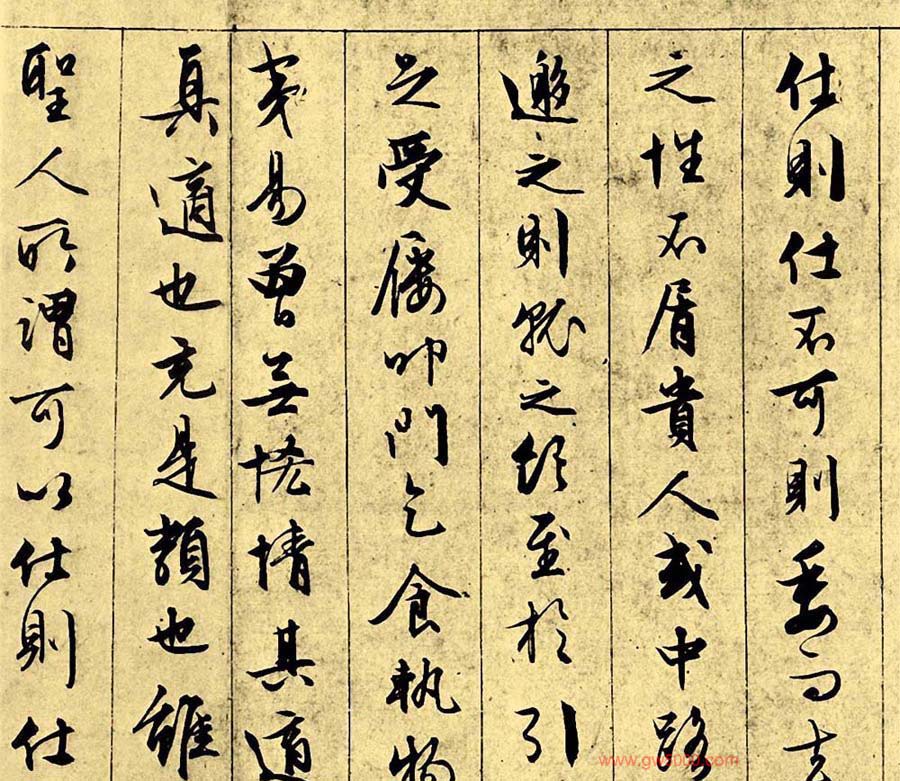 仕則仕不可則委而去
之性不屑貴人或中路
邀之則就之飲至於引
足受履叩門乞食執物
易曾無恡情其適
真適也充是類也雖
聖人所謂可以仕則仕